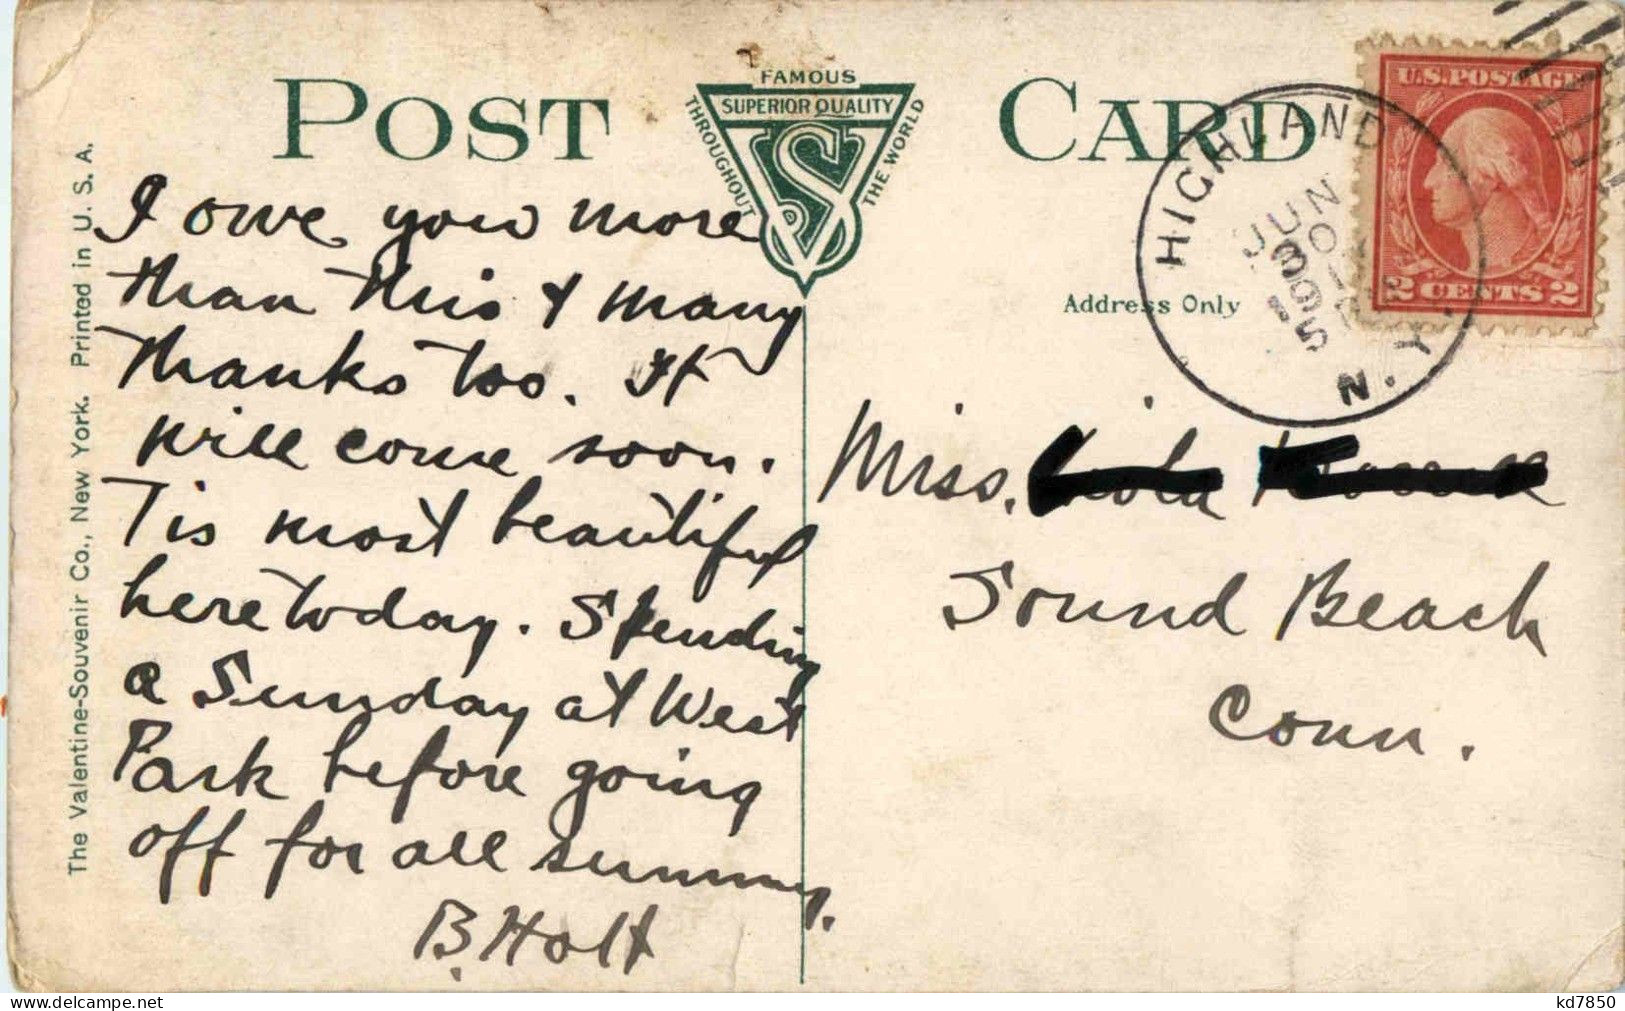 POST CARD
FAMOUS
SUPERIOR QUALITY
THROUGHOUT
THE WORLD
VS
I owe you more
than this & many
thanks too. It
will come soon.
Tis most beautiful
here today. Spending
a Sunday at West
Park before going
off for all summer.
B. Holt
The Valentine-Souvenir Co., New York. Printed in U. S. A.
Address Only
HIGHLAND
JUN
30
N.Y.
U.S. POSTAGE
2 CENTS 2
Miss.
Sound Beach
Conn.
kd7850